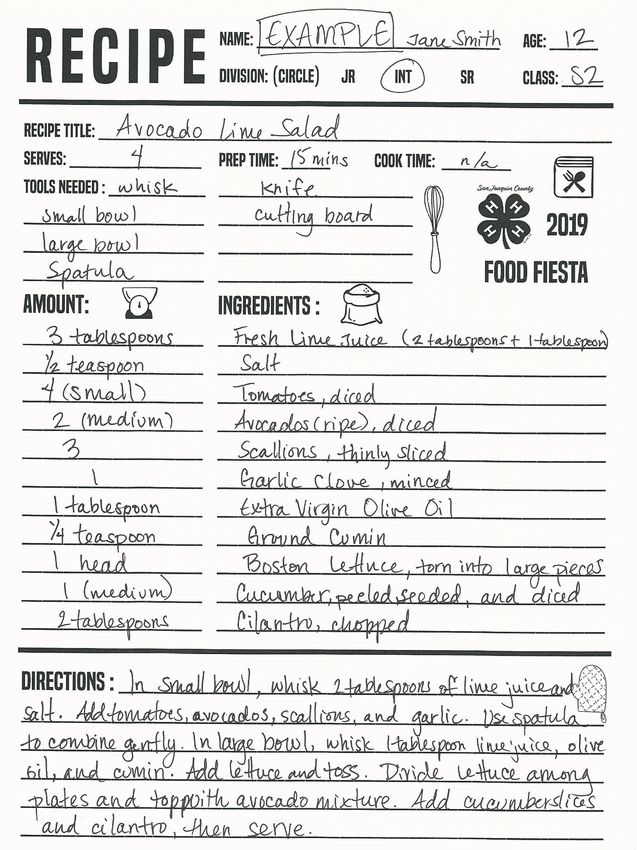 RECIPE NAME: EXAMPLE Jane Smith AGE: 12
DIVISION: (CIRCLE) JR INT SR CLASS: S2
RECIPE TITLE: Avocado Lime Salad
SERVES: 4 PREP TIME: 15 mins COOK TIME: n/a
TOOLS NEEDED: whisk knife
small bowl cutting board
large bowl
Spatula
San Joaquin County
H H H H
2019
FOOD FIESTA
AMOUNT: INGREDIENTS:
3 tablespoons Fresh Lime Juice (2 tablespoons + 1 tablespoon)
1/2 teaspoon Salt
4 (small) Tomatoes, diced
2 (medium) Avocados (ripe), diced
3 Scallions, thinly sliced
1 Garlic Clove, minced
1 tablespoon Extra Virgin Olive Oil
1/4 teaspoon Ground Cumin
1 head Boston Lettuce, torn into large pieces
1 (medium) Cucumber, peeled, seeded, and diced
2 tablespoons Cilantro, chopped
DIRECTIONS: In small bowl, whisk 2 tablespoons of lime juice and
salt. Add tomatoes, avocados, scallions, and garlic. Use spatula
to combine gently. In large bowl, whisk 1 tablespoon lime juice, olive
oil, and cumin. Add lettuce and toss. Divide lettuce among
plates and top with avocado mixture. Add cucumber slices
and cilantro, then serve.